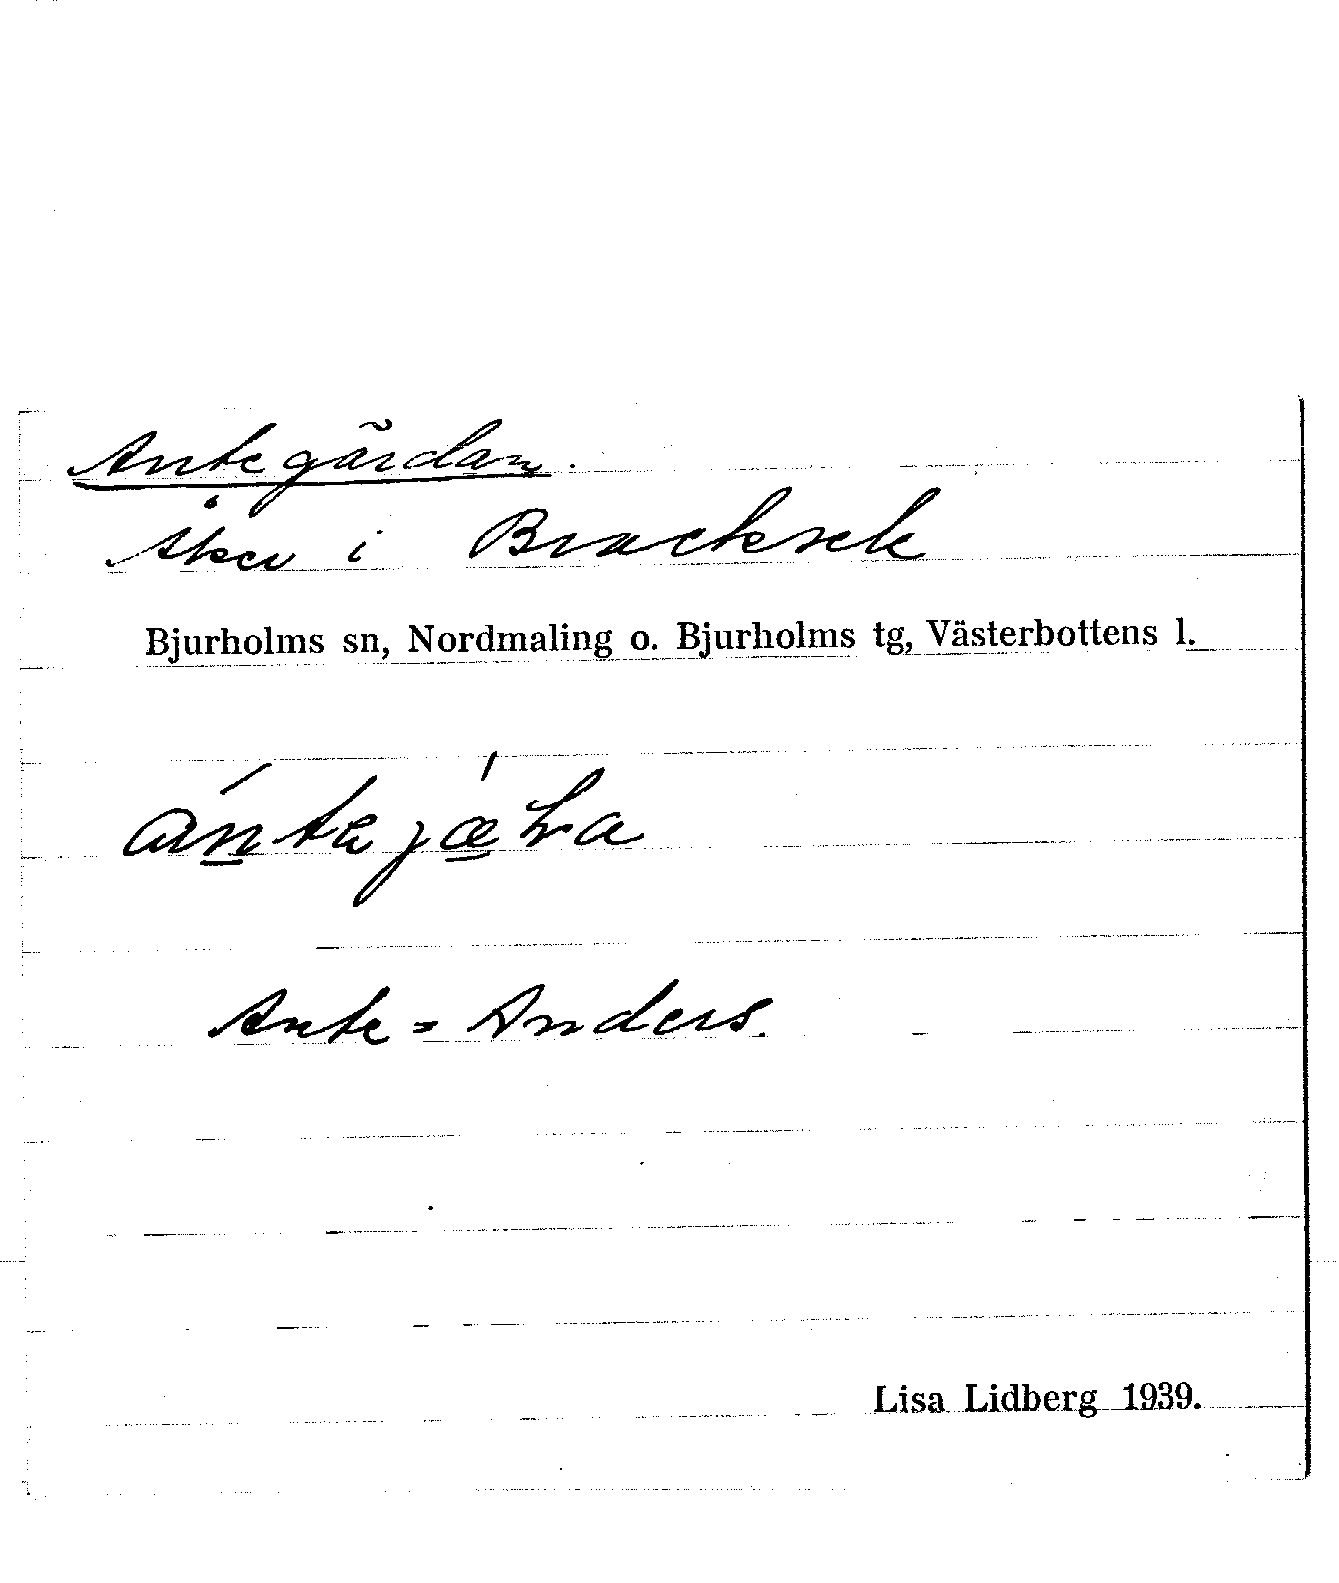 Antegärdan.
Åker i Brocksele
Bjurholms sn, Nordmaling o. Bjurholms tg, Västerbottens l.
Ante = Anders.
Lisa Lidberg 1939.